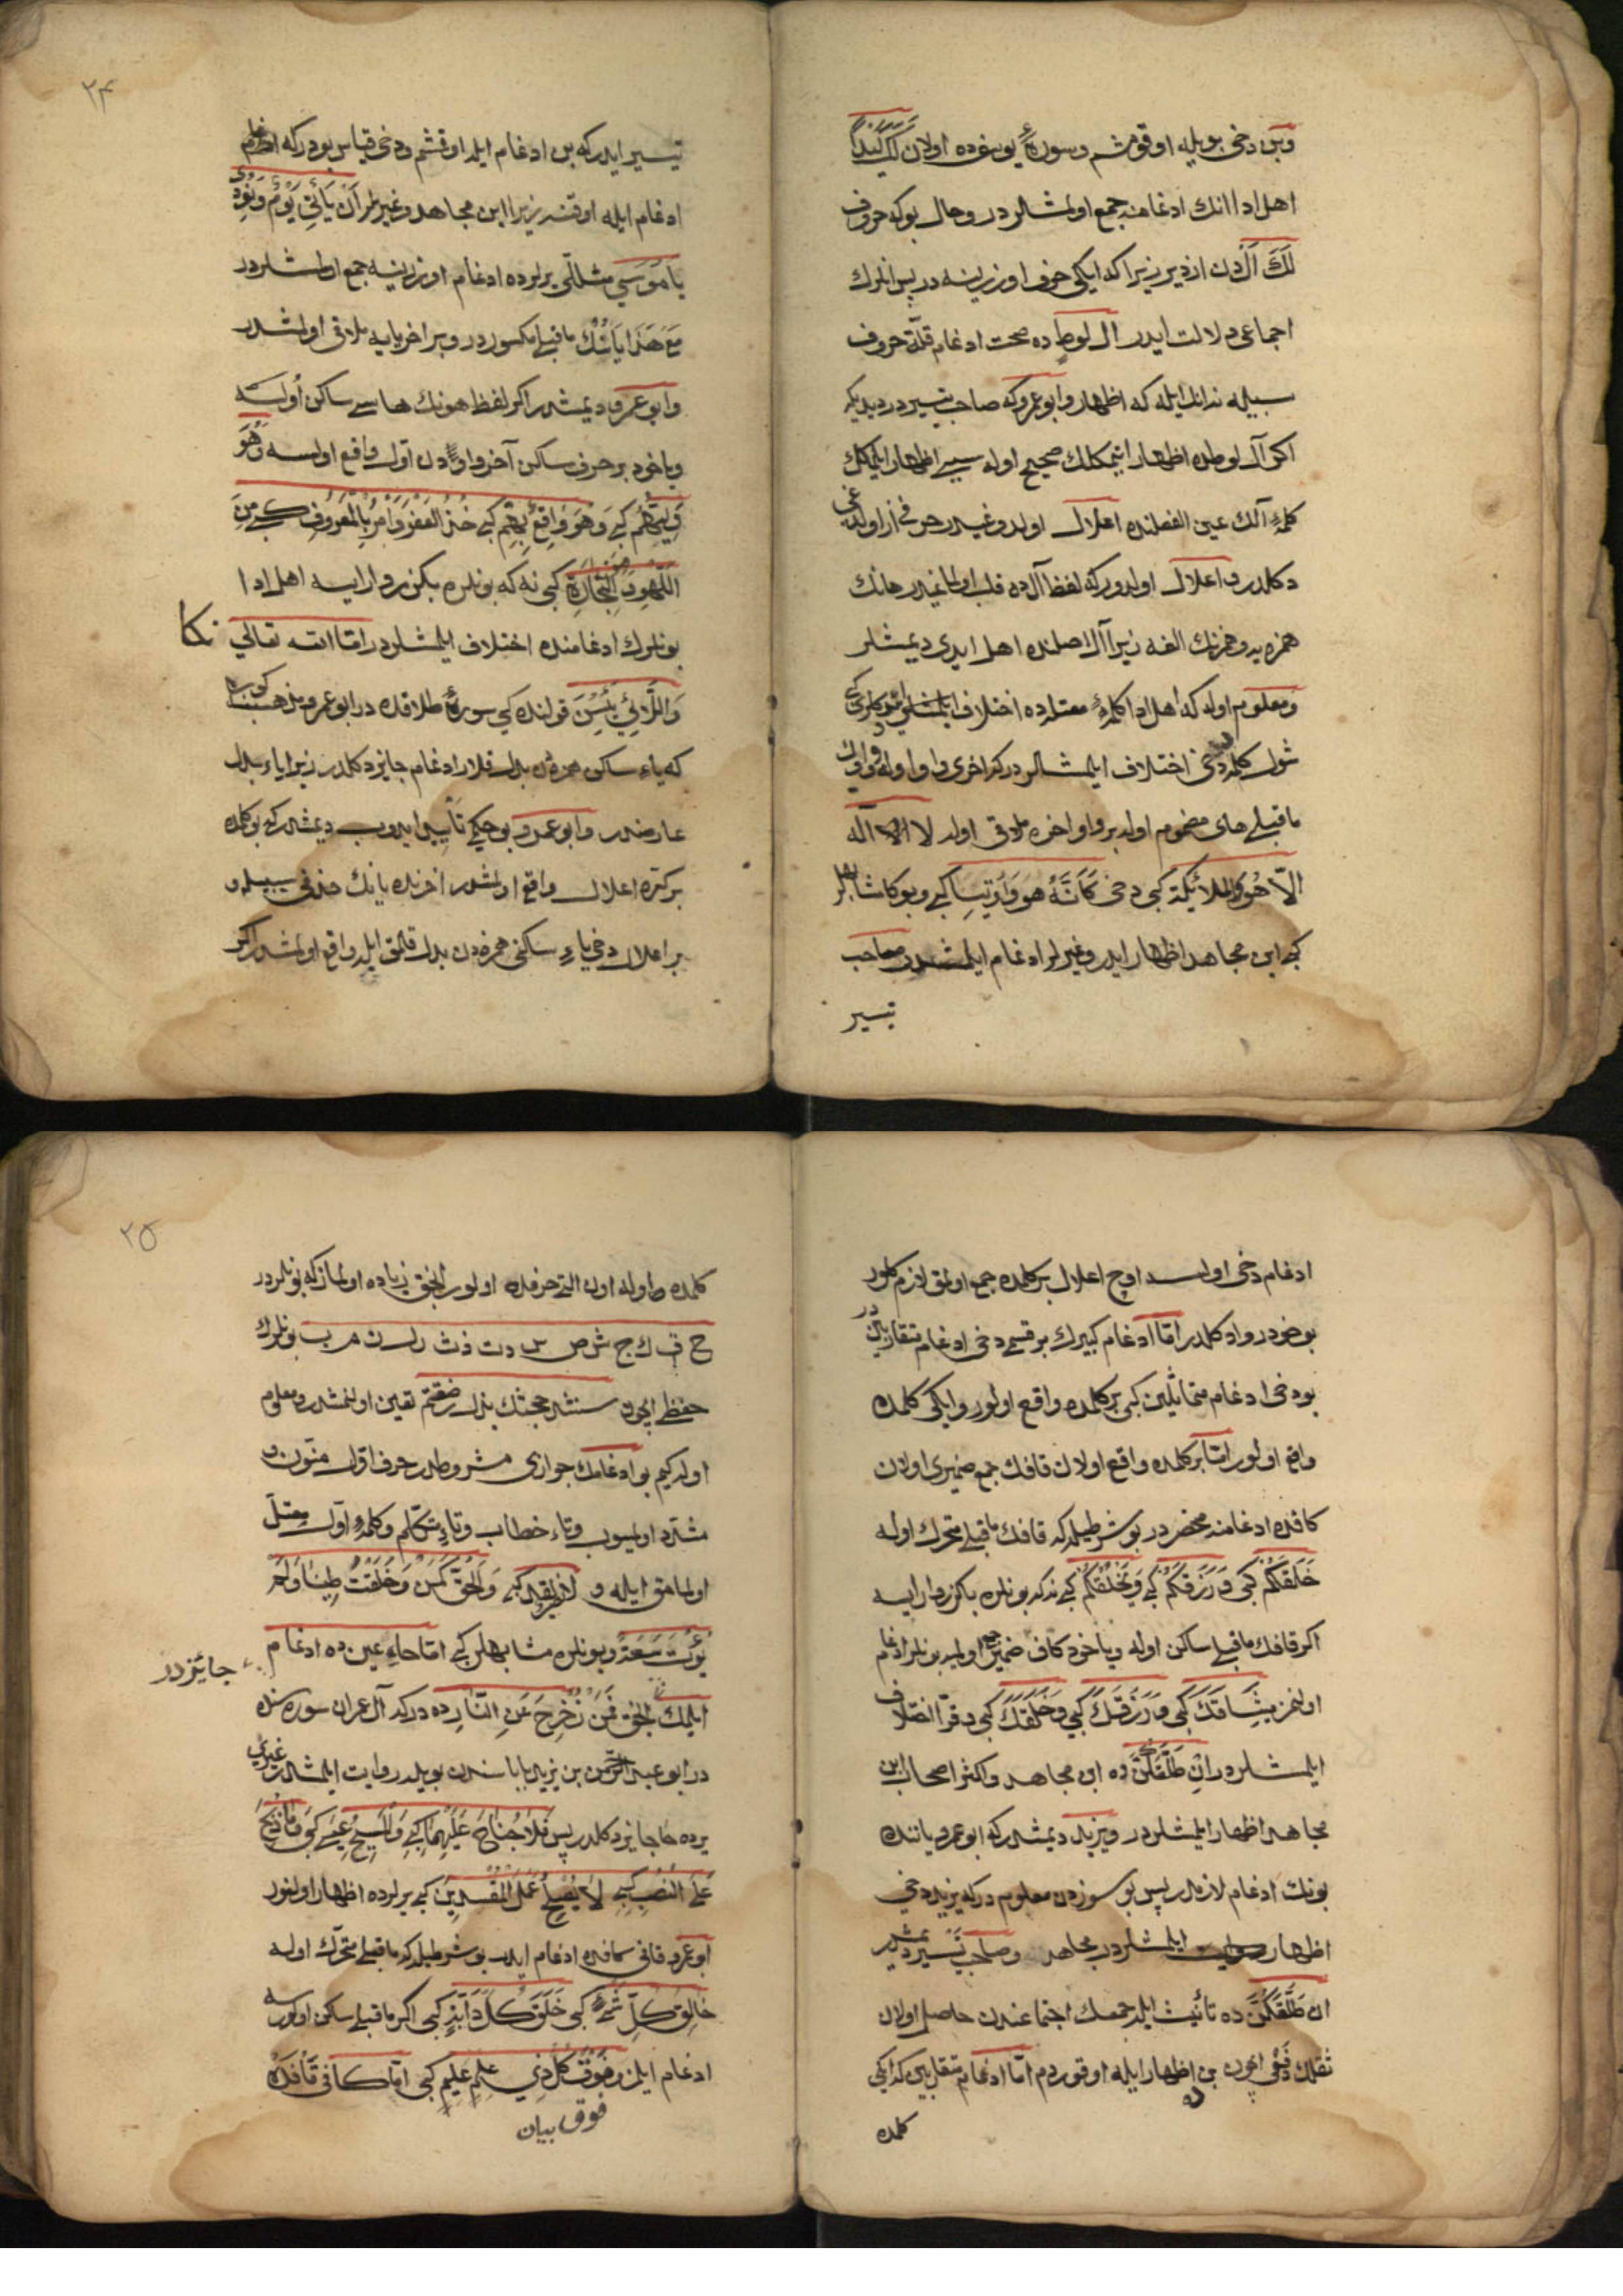 وبن دخی بویله اوقومشم وسورۀ یوسفده اولان لَكَ كَيْدًا
اهل ادا انك ادغامنه جمع اولمشلردر وحال بوكه حروف
لَكَ آل دن ازدیر زیرا كه ایكی حرف اوزرینه در پس انلرك
اجماعی دلالت ایدر ال لوط ده صحت ادغام قلة حروف
سبیله ندانك ایله كه اظهار وابو عمرو كه صاحب تیسیر در دیدیكه
اكر آل لوطده اظهار ایتمكلك صحیح اوله سببی اظهار ایلمكلك
كلمۀ آلك عین الفصلنده اعلال اولدوغیدر حرفی از اولدوغی
دكلدر و اعلال اولدر كه لفظ آل ده قلب اولنمشدر هانك
همزه یه وهمزنك الفه زیرا آل اصلنده اهل ایدی دیمشلر
ومعلوم اوله كه اهل ادا كلمۀ معتلده اختلاف ایلمشلردر كبی
شول كلمه ده دخی اختلاف ایلمشلردر كه اخری واو اوله و واوك
ماقبلی های مضموم اولوب بر واو اخره ملاقی اوله لا اله
الّا هُوَ وَالملائِكَة كبی دخی كَأَنَّهُ هُوَ وَأُوتِينَا كبی وبوكا مشابهلر
كبی ابن مجاهد اظهار ایدر وغیرلر ادغام ایلمشلردر صاحب
تیسیر
٢٤
تیسیر ایدر كه بن ادغام ایله اوقشم ودخی قیاس بودر كه
ادغام ایله اوقنه زیرا ابن مجاهد وغیرلر اَنْ يَأْتِيَ يَوْمٌ وَنُودِيَ
يا مُوسَي مثللی یرلرده ادغام اوزرینه جمع اولمشلردر
مع هذا یانك ماقبلی مكسوردر وبر اخر یایه ملاقی اولمشدر
وابو عمرو دیمشدر اكر لفظ هونك هاسی ساكن اولسه
ویاخود بر حرف ساكن آخر واودن اول واقع اولسه وَهُوَ
وَلِيُّهُم كبی وَهُوَ وَاقِعٌ بِهِم كبی خُذِ العَفْوَ وَأْمُرْ بِالْمَعْرُوفِ كبی مِنَ
اللَّهْوِ وَمِنَ التِّجَارَةِ كبی نه كه بونلره بكزر وار ایسه اهل ادا
بونلرك ادغامنده اختلاف ایلمشلردر امّا الله تعالی نكا
وَاللَّائِي يَئِسْنَ قولنده كی سورۀ طلاقده در ابو عمرو مذهبنده
كه یاء ساكن همزه دن بدل قلار ادغام جایز دكلدر زیرا یاء بدل
عارضدر وابو عمرو بو حكمی تأیید ایدوب دیمشدر كه بو كلمه ده
بر كره اعلال واقع اولمشدر اخرنده یانك حذفی سببیله و
بر اعلال دخی یاءِ ساكنی همزه دن بدل قلمق ایله واقع اولمشدر اكر
ادغام دخی اولسه اوچ اعلال بر كلمده جمع اولمق لازم كلور
بو خود روا دكلدر امّا ادغام كبیرك بر قسمی دخی ادغام متقاربین در
بو دخی ادغام متماثلین كبی بر كلمده واقع اولور و ایكی كلمده
واقع اولور امّا بر كلمده واقع اولان قافك جمع ضمیری اولان
كافده ادغامنه منحصر در بو شرطیله كه قافك ماقبلی متحرك اوله
خَلَقَكُمْ كبی وَرَزَقَكُمْ كبی وَيَخْلُقُكُمْ كبی نه كه بونلره بكزر وار ایسه
اكر قافك ماقبلی ساكن اوله ویاخود كاف ضمیر جمع اولمیه بونلر ادغام
اولنمز مِيثَاقَكُمْ كبی وَرَزَقَكَ كبی وَخَلَقَكَ كبی و قرّا اختلاف
ایلمشلردر اِنْ طَلَّقَكُنَّ ده ابن مجاهد واكثر اصحاب ابن
مجاهد اظهار ایلمشلردر ویزید دیمشدر كه ابو عمرو یاننده
بونك ادغام لازمدر پس بو سوزدن معلوم در كه یزید دخی
اظهار ایلمشلردر مجاهد وصاحب تیسیر دیمشدر
ان طَلَّقَكُنَّ ده تأنیث ایله جمعك اجتماعندن حاصل اولان
ثقلك دفعی ایچون بن اظهار ایله اوقوردم امّا ادغام متقاربین كه ایكی
كلمده
٢٥
كلمده اوله اون التی حرفده اولور انجق زیاده اولماز كه بونلردر
ح ق ك ج ش ض س د ت ذ ث ر ل ن م ب بونلرك
حفظی ایچون سنشد حجتك بذل رض قثم تعین اولنمشدر ومعلوم
اوله كیم بو ادغامك جوازی مشروطدر حرف اول منوّن و
مشدّد اولمیوب وتاءِ خطاب وتاءِ متكلّم وكلمۀ اول معتلّ
اولمامق ایله و كبی وَالحَقُّ كَمَنْ وَخَلَقْتَ طِينًا وَلَمْ
يُؤْتَ سَعَةً وبونلره مشابهلر كبی امّا حاء عین ده ادغام جائزدر
ایلمك انجق فَمَنْ زُحْزِحَ عَنِ النَّارِ ده در كه آل عمران سوره سنده
در ابو عبد الرّحمن بن یزید باباسندن بویله روایت ایلمشدر غیری
یرده حا جایز دكلدر پس فَلَا جُنَاحَ عَلَيْهِمَا كبی وَالْمَسِيحُ عِيسَى كبی وَمَا ذُبِحَ
عَلَى النُّصُبِ كبی لَا يُصْلِحُ عَمَلَ الْمُفْسِدِينَ كبی یرلرده اظهار اولنور
ابو عمرو قافی كافده ادغام ایدر بو شرطیله كه ماقبلی متحرّك اوله
خَالِقُ كُلِّ شَيْءٍ كبی خَلَقَ كُلَّ دَابَّةٍ كبی اكر ماقبلی ساكن اولورسه
ادغام ایلمز وَفَوْقَ كُلِّ ذِي عِلْمٍ عَلِيمٌ كبی امّا كافی قافده
فوق بیان